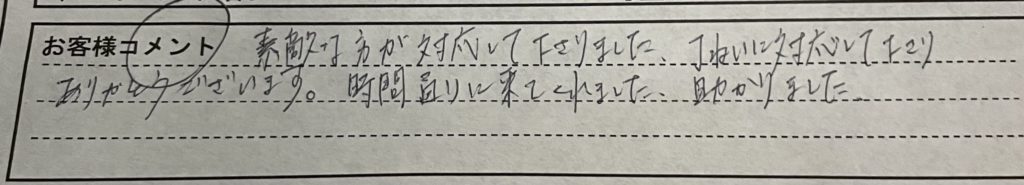 お客様コメント 素敵な方が対応して下さりました、丁ねいに対応して下さり
ありがとうございます。時間通りに来てくれました、助かりました